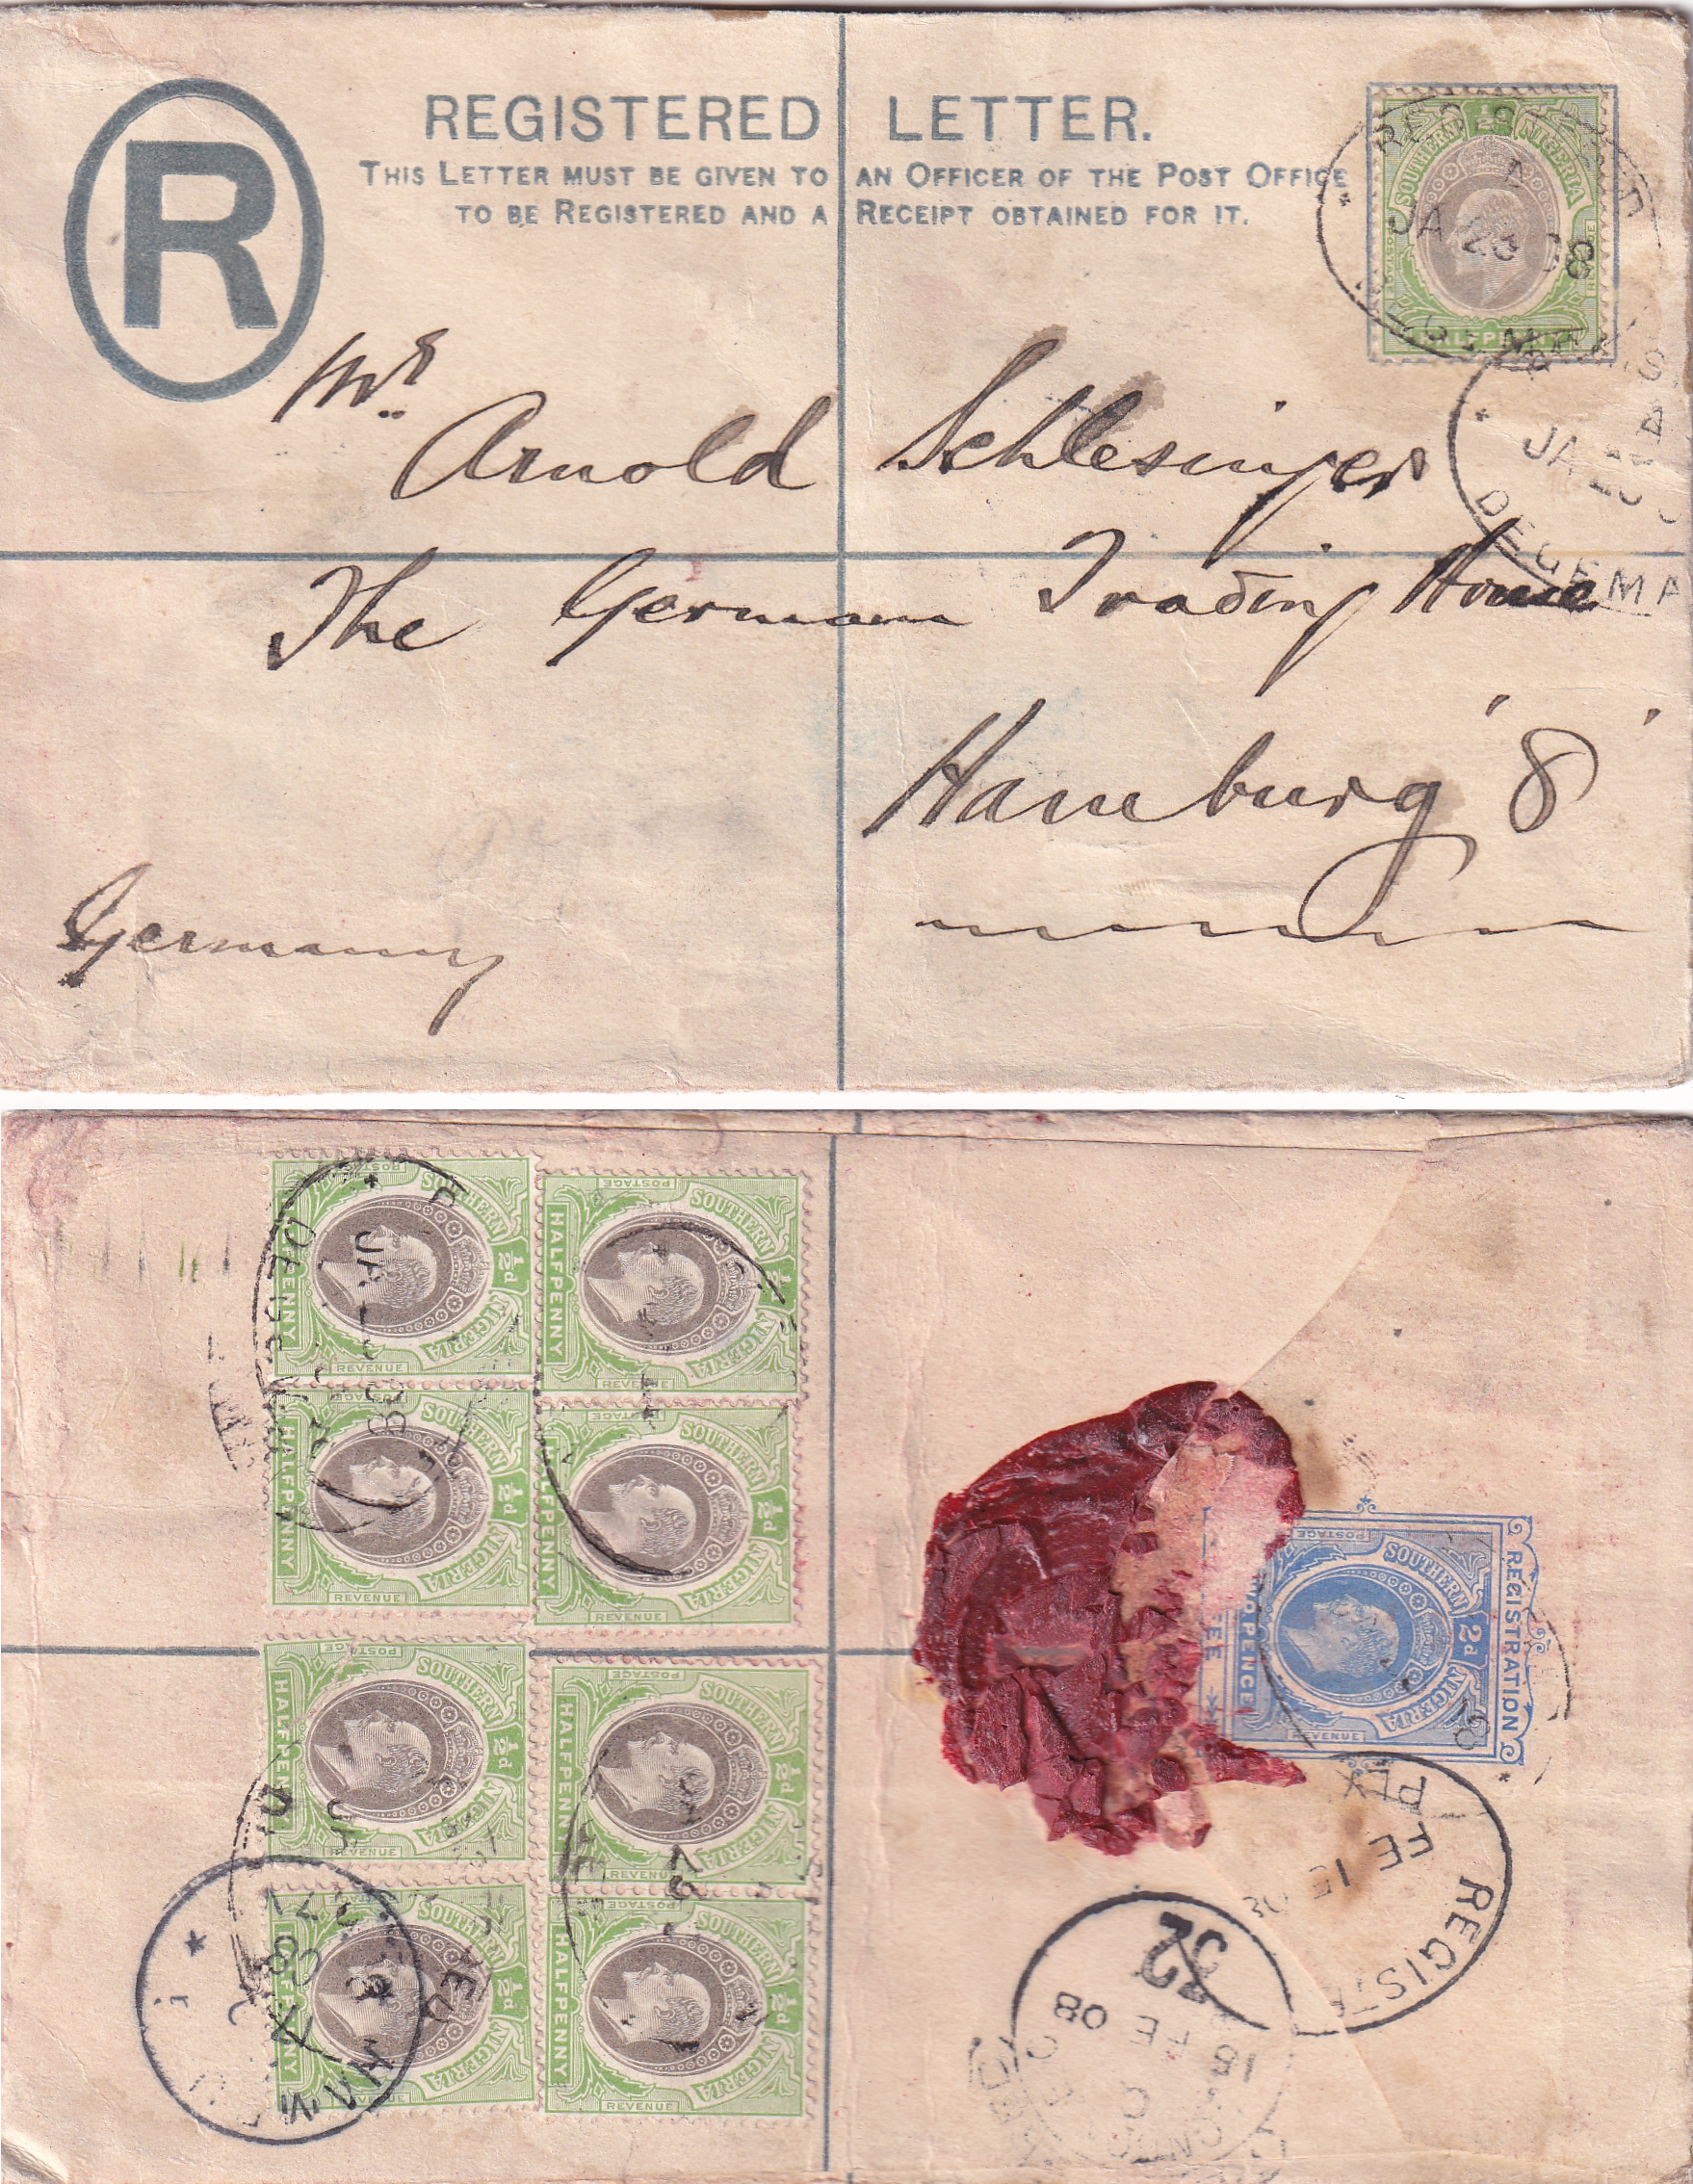 R
REGISTERED LETTER.
THIS LETTER MUST BE GIVEN TO AN OFFICER OF THE POST OFFICE
TO BE REGISTERED AND A RECEIPT OBTAINED FOR IT.
SOUTHERN NIGERIA
½d
HALFPENNY
JA 23 08
JA
DEGEMA
Mr.
Arnold Schlesinger
The German Trading House
Hamburg '8'
Germany
POSTAGE SOUTHERN ½d NIGERIA REVENUE HALFPENNY
POSTAGE SOUTHERN ½d NIGERIA REVENUE HALFPENNY
POSTAGE SOUTHERN ½d NIGERIA REVENUE HALFPENNY
POSTAGE SOUTHERN ½d NIGERIA REVENUE HALFPENNY
POSTAGE SOUTHERN ½d NIGERIA REVENUE HALFPENNY
POSTAGE SOUTHERN ½d NIGERIA REVENUE HALFPENNY
POSTAGE SOUTHERN ½d NIGERIA REVENUE HALFPENNY
POSTAGE SOUTHERN ½d NIGERIA REVENUE HALFPENNY
JA
08
REGISTRATION
POSTAGE SOUTHERN 2d NIGERIA REVENUE
PENCE
FEE
FE 15 08
32
FE
08
HAM